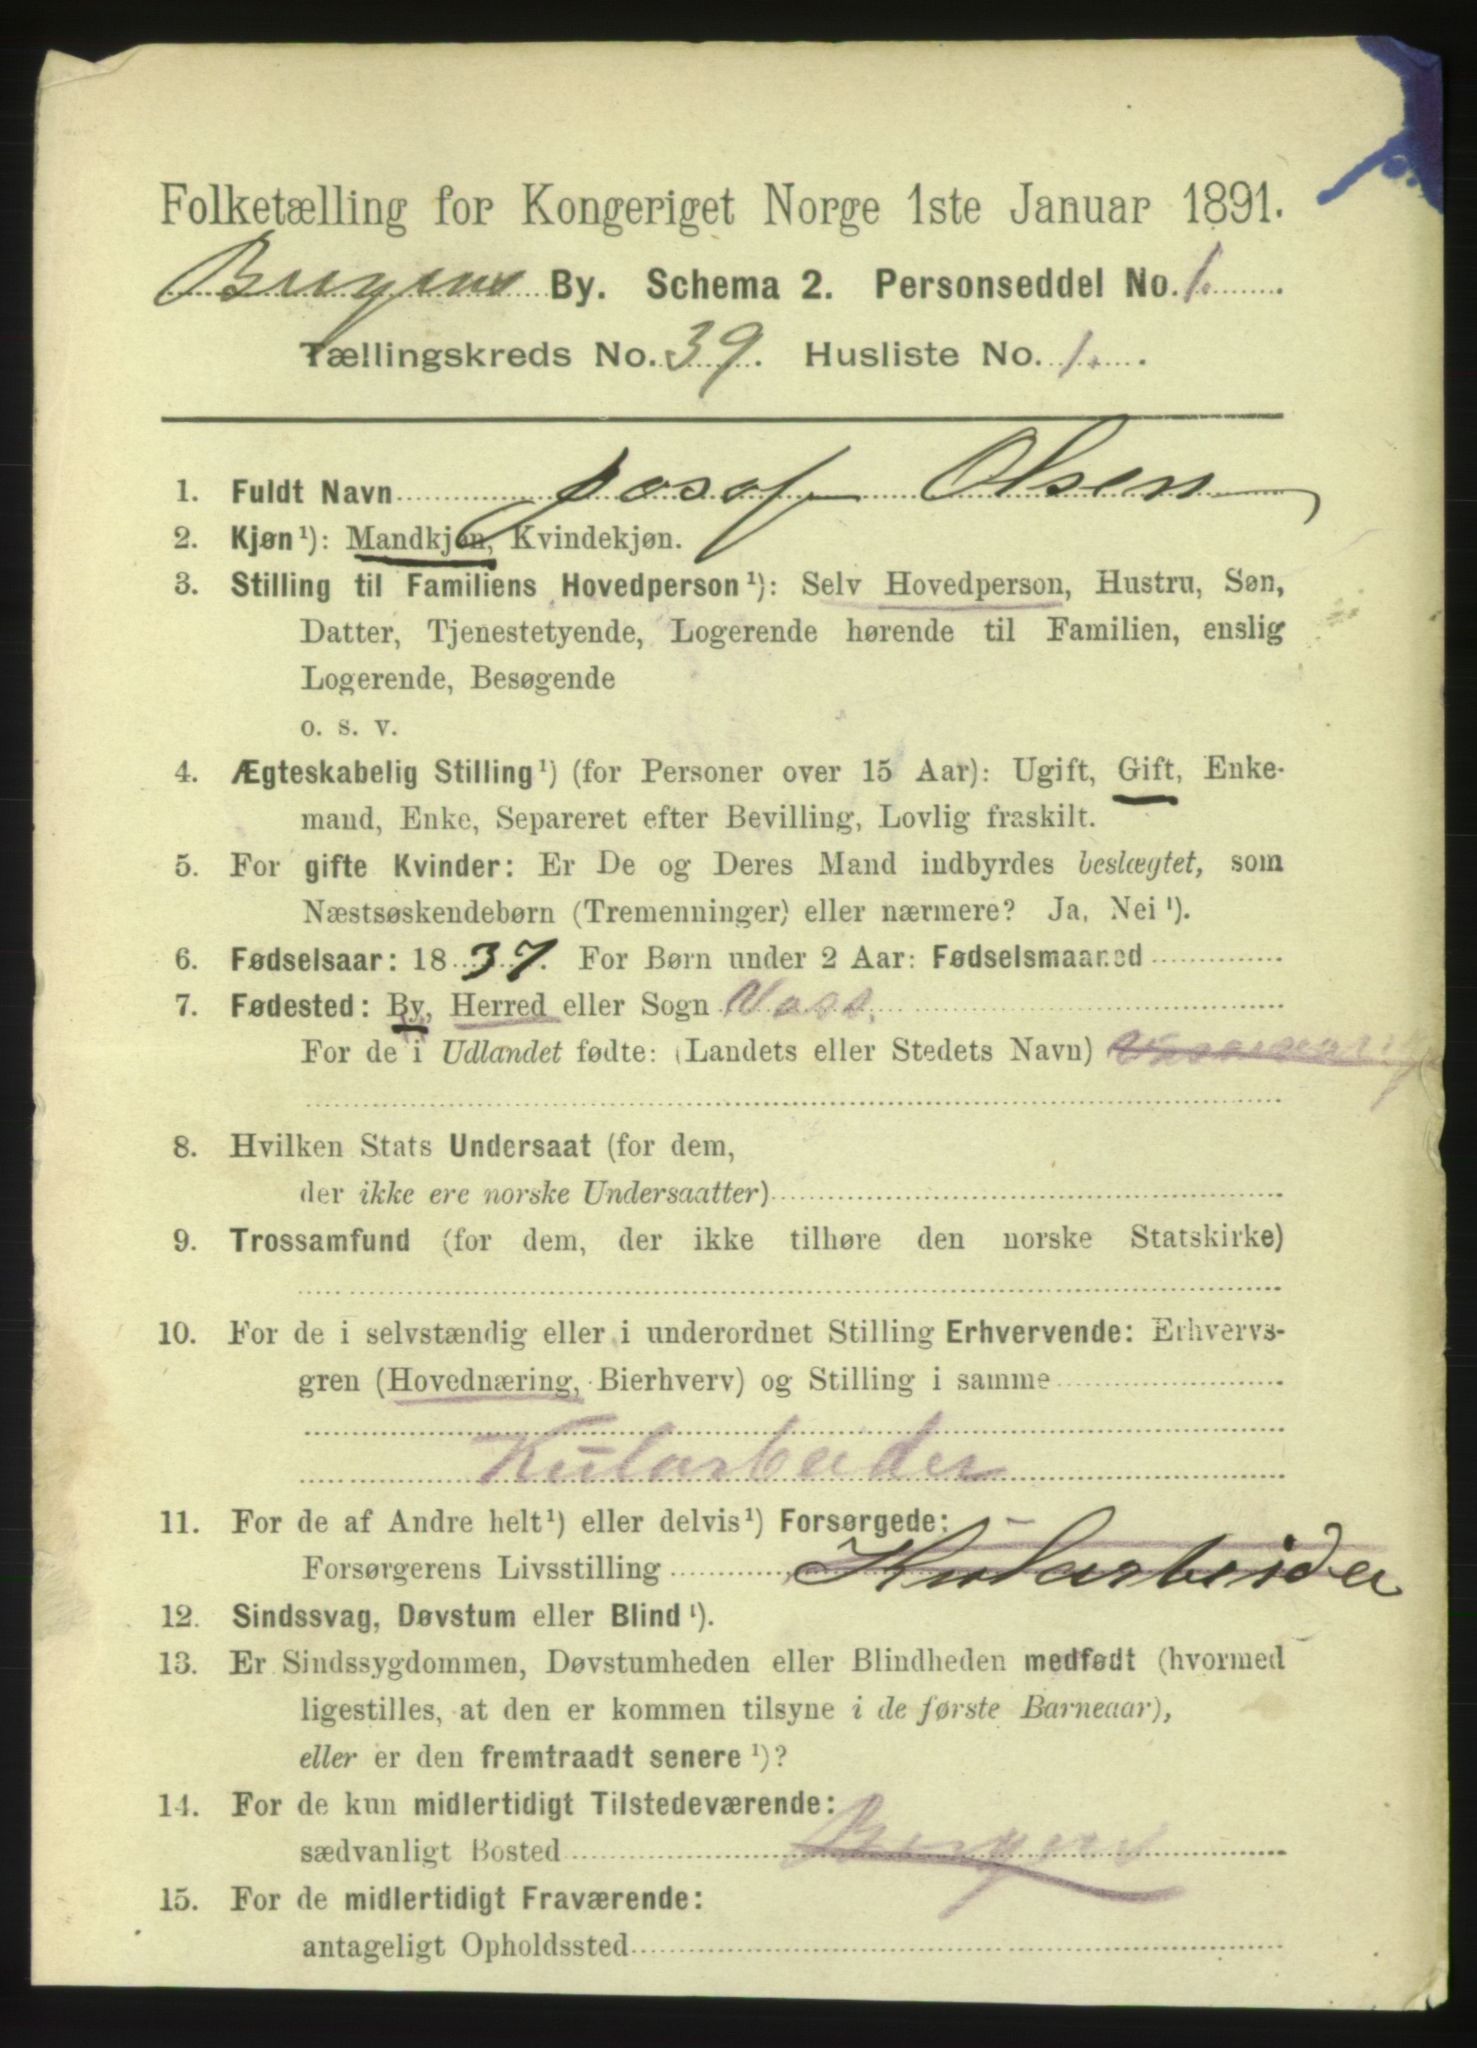 Folketælling for Kongeriget Norge 1ste Januar 1891.
Bergens By. Schema 2. Personseddel No. 1.
Tællingskreds No. 39. Husliste No. 1.
1. Fuldt Navn Josef Olsen
2. Kjøn ¹): Mandkjøn, Kvindekjøn.
3. Stilling til Familiens Hovedperson ¹): Selv Hovedperson, Hustru, Søn,
Datter, Tjenestetyende, Logerende hørende til Familien, enslig
Logerende, Besøgende
o. s. v.
4. Ægteskabelig Stilling ¹) (for Personer over 15 Aar): Ugift, Gift, Enke-
mand, Enke, Separeret efter Bevilling, Lovlig fraskilt.
5. For gifte Kvinder: Er De og Deres Mand indbyrdes beslægtet, som
Næstsøskendebørn (Tremenninger) eller nærmere? Ja, Nei ¹).
6. Fødselsaar: 1837. For Børn under 2 Aar: Fødselsmaaned
7. Fødested: By, Herred eller Sogn Voss.
For de i Udlandet fødte: (Landets eller Stedets Navn)
8. Hvilken Stats Undersaat (for dem,
der ikke ere norske Undersaatter)
9. Trossamfund (for dem, der ikke tilhøre den norske Statskirke)
10. For de i selvstændig eller i underordnet Stilling Erhvervende: Erhvervs-
gren (Hovednæring, Bierhverv) og Stilling i samme
Kularbeider
11. For de af Andre helt ¹) eller delvis ¹) Forsørgede:
Forsørgerens Livsstilling Kularbeider
12. Sindssvag, Døvstum eller Blind ¹).
13. Er Sindssygdommen, Døvstumheden eller Blindheden medfødt (hvormed
ligestilles, at den er kommen tilsyne i de første Barneaar),
eller er den fremtraadt senere ¹)?
14. For de kun midlertidigt Tilstedeværende:
sædvanligt Bosted Bergen
15. For de midlertidigt Fraværende:
antageligt Opholdssted